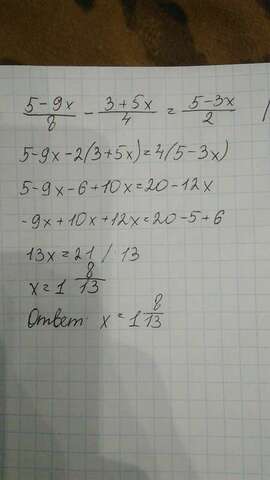 (5-9x)/8 - (3+5x)/4 = (5-3x)/2 /
5-9x-2(3+5x)=4(5-3x)
5-9x-6+10x=20-12x
-9x+10x+12x=20-5+6
13x=21 / 13
x=1 8/13
Ответ x=1 8/13